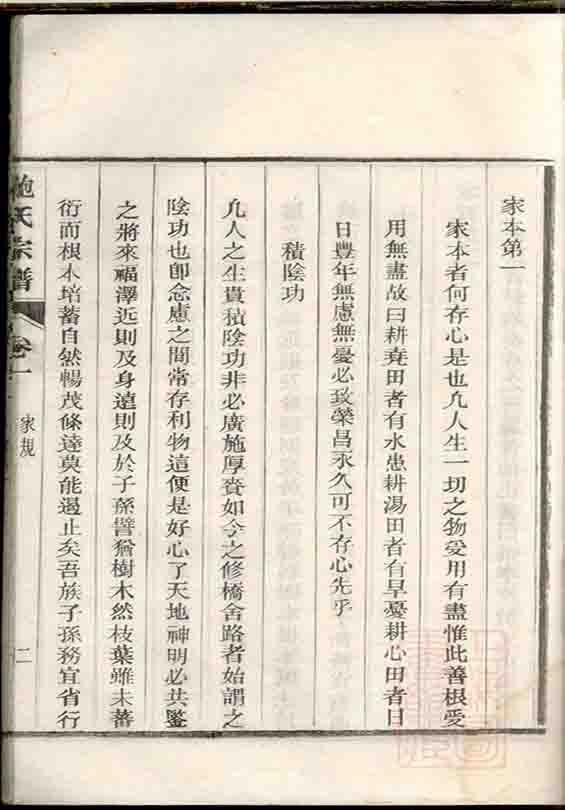 家本第一
家本者何存心是也凡人生一切之物受用有盡惟此善根受
用無盡故曰耕堯田者有水患耕湯田者有旱憂耕心田者日
日豐年無慮無憂必致榮昌永久可不存心先乎
積陰功
凡人之生貴積陰功非必廣施厚賚如今之修橋舍路者始謂之
陰功也卽念慮之間常存利物這便是好心了天地神明必共鑒
之將來福澤近則及身遠則及於子孫譬猶樹木然枝葉雖未蕃
衍而根本培蓄自然暢茂條達莫能遏止矣吾族子孫務宜省行
氏宗譜
卷一
家規
二